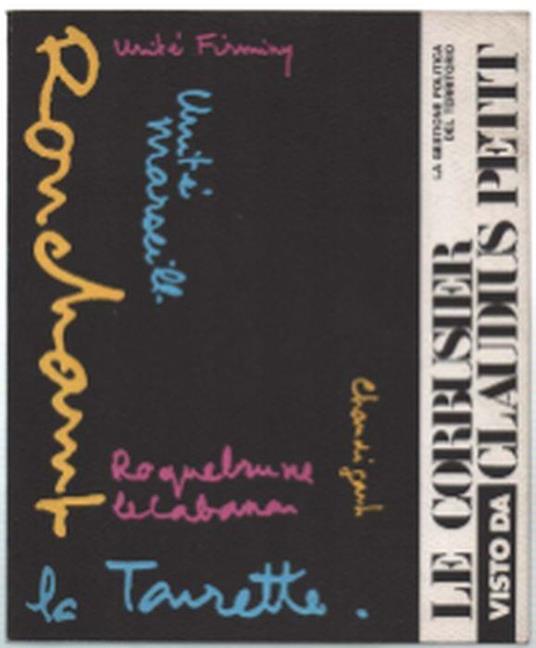 Unité Firminy
Ronchamp
Unité
Marseill.
Chandigarh
Roquebrune
le Cabanon
la Tourette.
LA GESTIONE POLITICA
DEL TERRITORIO
LE CORBUSIER
VISTO DA CLAUDIUS PETIT